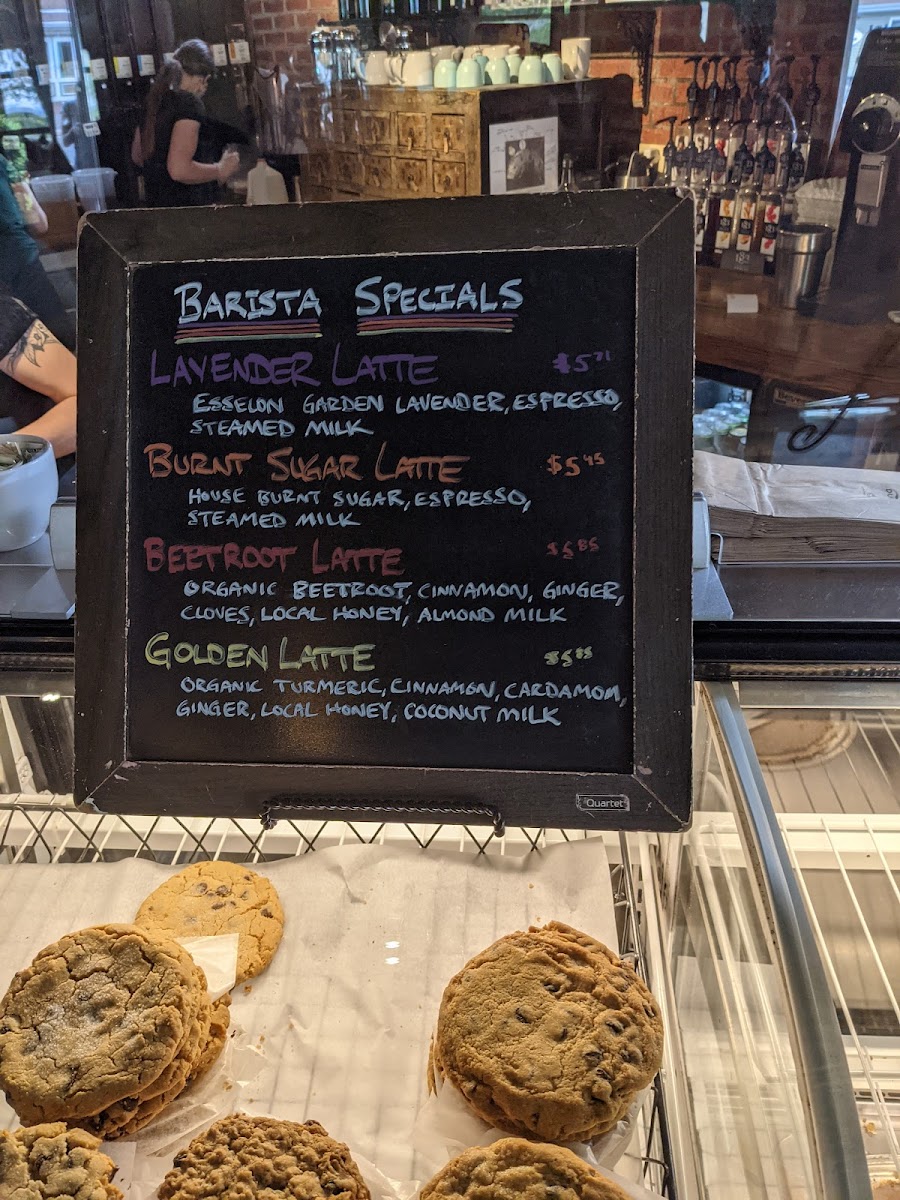 BARISTA SPECIALS
LAVENDER LATTE $5.71
ESSELON GARDEN LAVENDER, ESPRESSO,
STEAMED MILK
BURNT SUGAR LATTE $5.45
HOUSE BURNT SUGAR, ESPRESSO,
STEAMED MILK
BEETROOT LATTE $5.85
ORGANIC BEETROOT, CINNAMON, GINGER,
CLOVES, LOCAL HONEY, ALMOND MILK
GOLDEN LATTE $5.85
ORGANIC TURMERIC, CINNAMON, CARDAMOM,
GINGER, LOCAL HONEY, COCONUT MILK
Quartet